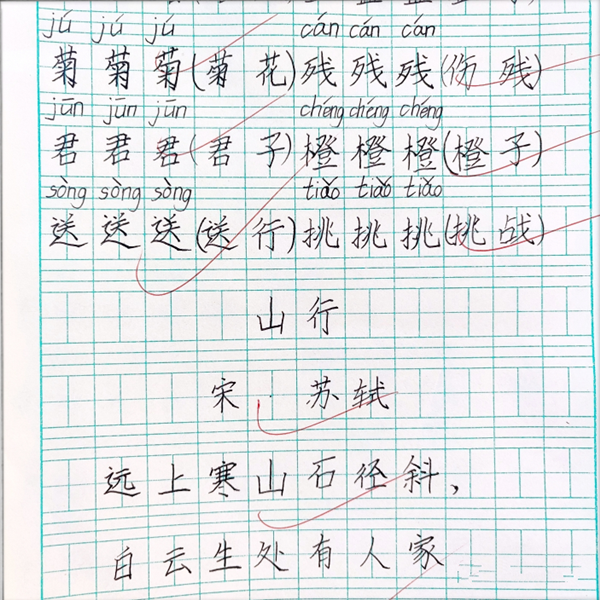 jú jú jú cán cán cán
菊 菊 菊(菊 花)残 残 残(伤 残)
jūn jūn jūn chéng chéng chéng
君 君 君(君 子)橙 橙 橙(橙 子)
sòng sòng sòng tiǎo tiǎo tiǎo
送 送 送(送 行)挑 挑 挑(挑 战)
山 行
宋 · 苏 轼
远 上 寒 山 石 径 斜，
白 云 生 处 有 人 家